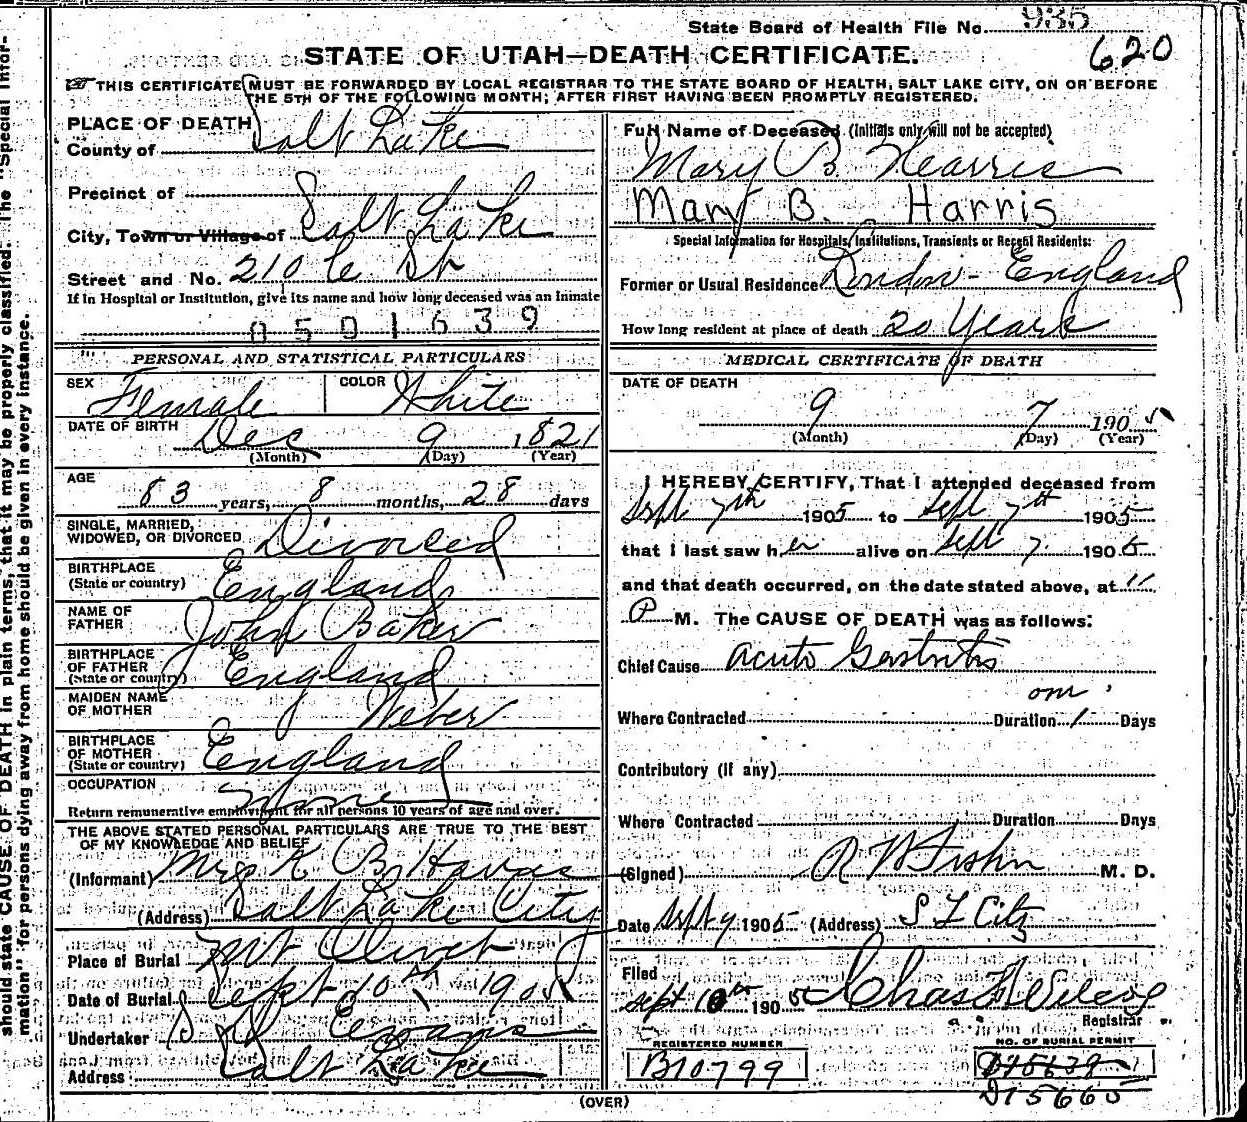 should state CAUSE OF DEATH in plain terms, that it may be properly classified. The "Special Infor-
mation" for persons dying away from home should be given in every instance.
State Board of Health File No. 935
620
STATE OF UTAH—DEATH CERTIFICATE.
THIS CERTIFICATE MUST BE FORWARDED BY LOCAL REGISTRAR TO THE STATE BOARD OF HEALTH, SALT LAKE CITY, ON OR BEFORE
THE 5TH OF THE FOLLOWING MONTH; AFTER FIRST HAVING BEEN PROMPTLY REGISTERED.
PLACE OF DEATH
County of Salt Lake
Precinct of
City, Town or Village of Salt Lake
Street and No. 210 C St
If in Hospital or Institution, give its name and how long deceased was an inmate
0501639
PERSONAL AND STATISTICAL PARTICULARS
SEX Female COLOR White
DATE OF BIRTH Dec 9 1821
(Month) (Day) (Year)
AGE
83 years, 8 months, 28 days
SINGLE, MARRIED,
WIDOWED, OR DIVORCED Divorced
BIRTHPLACE
(State or country) England
NAME OF
FATHER John Baker
BIRTHPLACE
OF FATHER
(State or country) England
MAIDEN NAME
OF MOTHER Weber
BIRTHPLACE
OF MOTHER
(State or country) England
OCCUPATION None
Return remunerative employment for all persons 10 years of age and over.
THE ABOVE STATED PERSONAL PARTICULARS ARE TRUE TO THE BEST
OF MY KNOWLEDGE AND BELIEF
(Informant) Mrs K B
(Address) Salt Lake City
Place of Burial Mt Olivet
Date of Burial Sept 10th 1905
Undertaker Evans
Address Salt Lake
Full Name of Deceased. (Initials only will not be accepted)
Mary B Hearris
Mary B. Harris
Special Information for Hospitals, Institutions, Transients or Recent Residents:
Former or Usual Residence London - England
How long resident at place of death 20 Years
MEDICAL CERTIFICATE OF DEATH
DATE OF DEATH
9 7 1905
(Month) (Day) (Year)
I HEREBY CERTIFY, That I attended deceased from
Sept 7th 1905 to Sept 7th 1905
that I last saw her alive on Sept 7. 1905
and that death occurred, on the date stated above, at 11
P M. The CAUSE OF DEATH was as follows:
Chief Cause Acute Gastritis
one
Where Contracted Duration 1 Days
Contributory (If any)
Where Contracted Duration Days
(Signed) M. D.
Date Sept 9 1905 (Address) S L City
Filed
Sept 10th 1905 Chas
Registrar
REGISTERED NUMBER
B10799
NO. OF BURIAL PERMIT
D15639
D15660
(OVER)